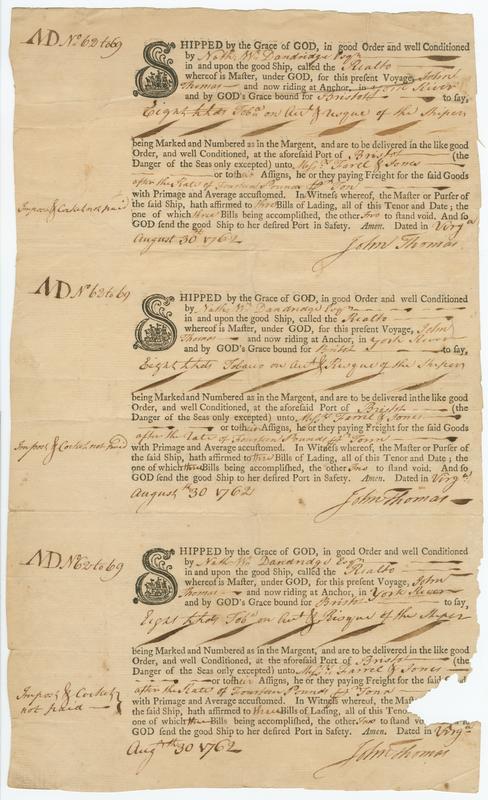 ND No 62 to 69
SHIPPED by the Grace of GOD, in good Order and well Conditioned
by Nathl Wt Dandridge Esqr
in and upon the good Ship, called the Rialto
whereof is Master, under GOD, for this present Voyage, John
Thomas and now riding at Anchor, in York River
and by GOD's Grace bound for Bristol to say,
Eight Hhds Tobo on Acct & risque of the Shipers
being Marked and Numbered as in the Margent, and are to be delivered in the like good
Order, and well Conditioned, at the aforesaid Port of Bristol (the
Danger of the Seas only excepted) unto Messrs Farel & Jones
or to their Assigns, he or they paying Freight for the said Goods
after the Rate of Fourteen Pounds pr Ton
with Primage and Average accustomed. In Witness whereof, the Master or Purser of
Impost & Cocket not paid
the said Ship, hath affirmed to three Bills of Lading, all of this Tenor and Date; the
one of which three Bills being accomplished, the other two to stand void. And so
GOD send the good Ship to her desired Port in Safety. Amen. Dated in Virga
August 30th 1762
John Thomas
ND No 62 to 69
SHIPPED by the Grace of GOD, in good Order and well Conditioned
by Nathl Wt Dandridge Esqr
in and upon the good Ship, called the Rialto
whereof is Master, under GOD, for this present Voyage, John
Thomas and now riding at Anchor, in York River
and by GOD's Grace bound for Bristol to say,
Eight Hhds Tobaco on Acct & Risque of the Shipers
being Marked and Numbered as in the Margent, and are to be delivered in the like good
Order, and well Conditioned, at the aforesaid Port of Bristol (the
Danger of the Seas only excepted) unto Messrs Farrel & Jones
or to their Assigns, he or they paying Freight for the said Goods
after the Rate of Fourteen Pounds pr Tonn
Impost & Cocket not paid
with Primage and Average accustomed. In Witness whereof, the Master or Purser of
the said Ship, hath affirmed to three Bills of Lading, all of this Tenor and Date; the
one of which three Bills being accomplished, the other two to stand void. And so
GOD send the good Ship to her desired Port in Safety. Amen. Dated in Virga
August 30th 1762
John Thomas
ND No 62 to 69
SHIPPED by the Grace of GOD, in good Order and well Conditioned
by Nathl Wt Dandridge Esqr
in and upon the good Ship, called the Rialto
whereof is Master, under GOD, for this present Voyage, John
Thomas and now riding at Anchor, in York River
and by GOD's Grace bound for Bristol to say,
Eight Hhds Tobo on Acct & Risque of the Shiper
being Marked and Numbered as in the Margent, and are to be delivered in the like good
Order, and well Conditioned, at the aforesaid Port of Bristol (the
Danger of the Seas only excepted) unto Messrs Farrel & Jones
or to their Assigns, he or they paying Freight for the said Goods
after the Rate of Fourteen Pounds pr Tonn
Impost & Cocket
not paid
with Primage and Average accustomed. In Witness whereof, the Master or Purser
the said Ship, hath affirmed to three Bills of Lading, all of this Tenor and
one of which three Bills being accomplished, the other two to stand
GOD send the good Ship to her desired Port in Safety. Amen. Dated in Virga
Augt 30 1762
John Thomas